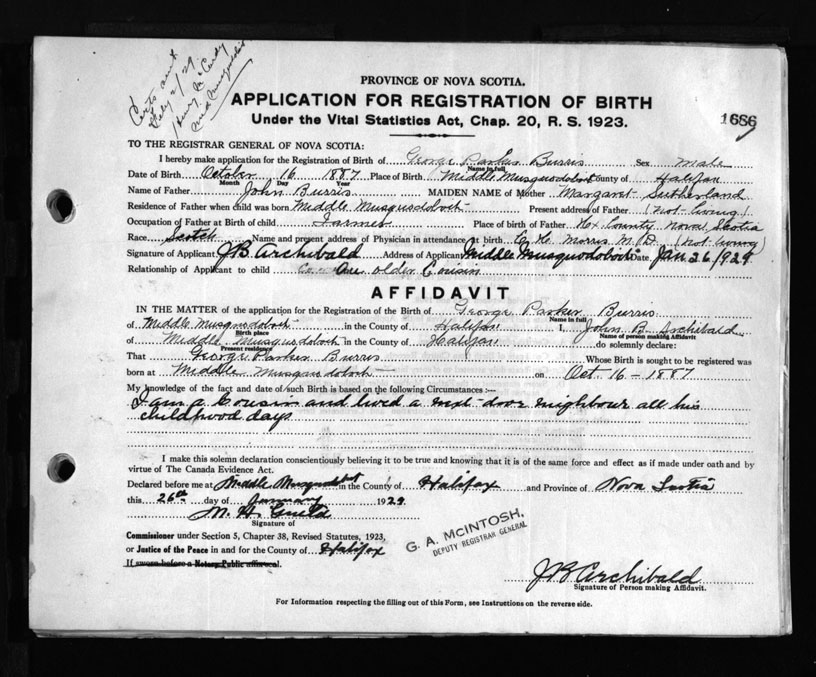 Certs sent
July 2/29
Henry McCurdy
mid Musquodoboit
PROVINCE OF NOVA SCOTIA.
APPLICATION FOR REGISTRATION OF BIRTH
1686
Under the Vital Statistics Act, Chap. 20, R. S. 1923.
TO THE REGISTRAR GENERAL OF NOVA SCOTIA:
I hereby make application for the Registration of Birth of George Parker Burris Sex male
Name in full
Date of Birth October 16 1887 Place of Birth Middle Musquodoboit County of Halifax
Month Day Year
Name of Father John Burris MAIDEN NAME of Mother Margaret Sutherland
Residence of Father when child was born Middle Musquodoboit Present address of Father (not living)
Occupation of Father at Birth of child Farmer Place of birth of Father Hx County Nova Scotia
Race Scotch Name and present address of Physician in attendance at birth Morris M.D. (not living)
Signature of Applicant J B Archibald Address of Applicant Middle Musquodoboit Date Jan 26/1929
Relationship of Applicant to child older Cousin
AFFIDAVIT
IN THE MATTER of the application for the Registration of the Birth of George Parker Burris
Name in full
of Middle Musquodoboit in the County of Halifax I, John B Archibald
Birth place Name of person making Affidavit
of Middle Musquodoboit in the County of Halifax do solemnly declare:
Present residence
That George Parker Burris Whose Birth is sought to be registered was
born at Middle Musquodoboit on Oct 16 - 1887
My knowledge of the fact and date of such Birth is based on the following Circumstances :—
I am a Cousin and lived a next-door neighbour all his
childhood days
I make this solemn declaration conscientiously believing it to be true and knowing that it is of the same force and effect as if made under oath and by
virtue of The Canada Evidence Act.
Declared before me at Middle Musquodoboit in the County of Halifax and Province of Nova Scotia
this 26th day of January 1929
M. H. Guild
Signature of
Commissioner under Section 5, Chapter 38, Revised Statutes, 1923,
or Justice of the Peace in and for the County of Halifax
G. A. McINTOSH,
DEPUTY REGISTRAR GENERAL
If sworn before a Notary Public affix seal.
J B Archibald
Signature of Person making Affidavit.
For Information respecting the filling out of this Form, see Instructions on the reverse side.